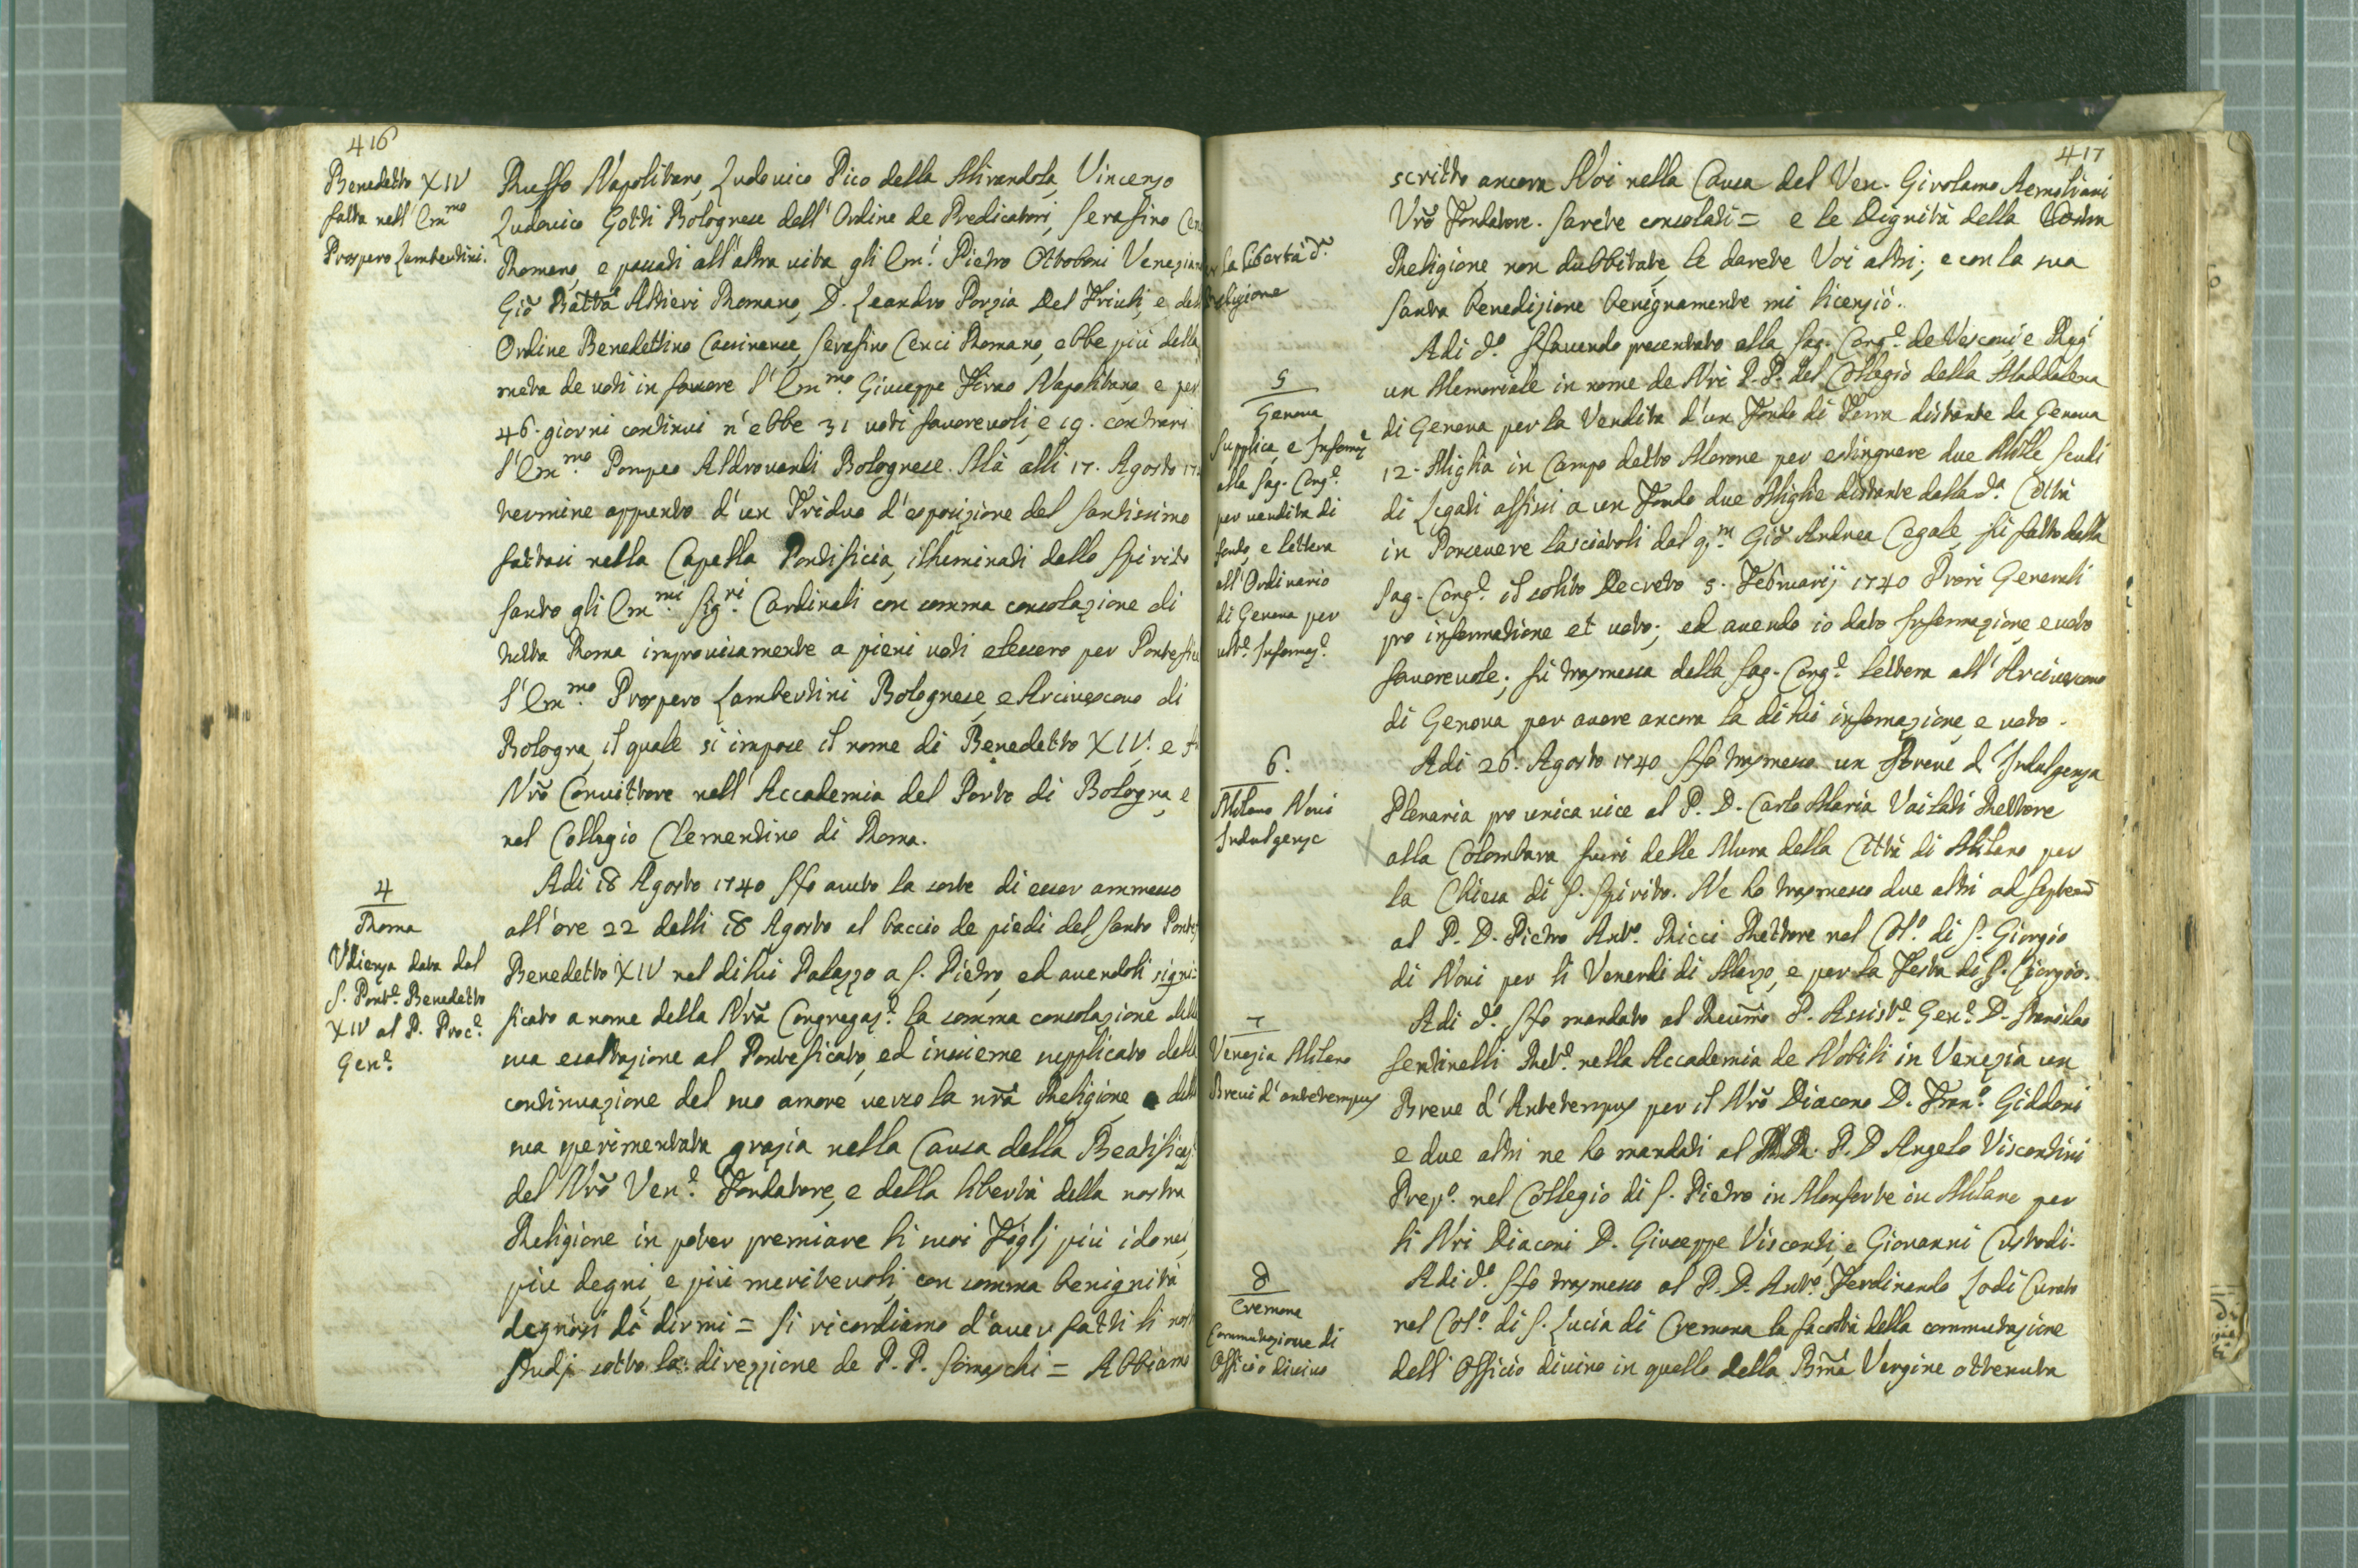 416
Benedetto XIV
fatta nell' Em.mo
Prospero Lambertini.
Ruffo Napolitano, Ludovico Pico della Mirandola, Vincenzo
Ludovico Gotti Bolognese dell' Ordine de Predicatori, Serafino Cen
Romano, e passati all' altra vita gli Em.i Pietro Ottoboni Venezian
Giõ Batta Altieri Romano, D. Leandro Porzia Del Friuli, e dell
Ordine Benedettino Cassinense, Serafino Cenci Romano, ebbe più della
metà de voti in favore l' Em.mo Giuseppe Firao Napolitano, e per
46. giorni continui n' ebbe 31 voti favorevoli, e 19. contrari
l' Em.mo Pompeo Aldrovandi Bolognese. Mà alli 17. Agosto 17
termine appunto d' un Triduo d' esposizione del Santissimo
fattasi nella Capella Pontificia, illuminati dallo Spirito
Santo gli Em.mi Sig.ri Cardinali con somma consolazione di
tutta Roma improvisamente a pieni voti elessero per Pontefice
l' Em.mo Prospero Lambertini Bolognese, e Arcivescovo di
Bologna, il quale si impose il nome di Benedetto XIV. e
Nrõ Convittore nell' Accademia del Porto di Bologna, e
nel Collegio Clementino di Roma.
4
Roma
Udienza data dal
S. Pont.e Benedetto
XIV al P. Proc.e
Gen.e
Adi 18 Agosto 1740 Hò avuto la sorte di esser ammesso
all' ore 22 delli 18 Agosto al baccio de piedi del Santo Pontef
Benedetto XIV nel di lui Palazzo a S. Pietro, ed avendoli signi-
ficato a nome della Nrã Congregaz.e la somma consolazione della
sua esaltazione al Pontificato, ed insieme supplicato della
continuazione del suo amore verso la nrã Religione, e della
sua sperimentata grazia nella Causa della Beatificaz.
del Nrõ Ven.e Fondatore, e della libertà della nostra
Religione in poter premiare li suoi Figlj più idonei,
più degni, e più meritevoli, con somma benignità
degnossi di dirmi = Si ricordiamo d' aver fatti li nost
studj sotto la direzzione de P. P. Somaschi = Abbiamo
417
per la libertà d.a
Religione
scritto ancora Noi nella Causa del Ven. Girolamo Aemoliani
Vrõ Fondatore. Sarete consolati = e le Dignità della Vostra
Religione, non dubbitate, le darete Voi altri; e con la sua
santa benedizione benignamente mi licenziò.
5
Genova
Supplica, e Informe
alla Sag. Cong.e
per vendita di
fondo, e lettera
all' Ordinario
di Genova per
ult.e Informaz.e
Adi d.o Havendo presentato alla Sag. Cong.e de Vescovi e Reg.i
un Memoriale in nome de Nri P. P. del Collegio della Maddalena
di Genova per la Vendita d' un Fondo di Terra distante da Genova
12. Miglia in Campo detto Marone per estinguere due Mille scudi
di Legati affissi a un Fondo due Miglie distante dalla d.a Città
in Ponsevere lasciatoli dal q.m Giõ Andrea Cegale, fù fatto dalla
Sag. Cong.e il solito Decreto 5. Februarij 1740 Prori Generali
pro informatione et voto; ed avendo io dato Informazione, e voto
favorevole, fù trasmessa dalla Sag. Cong.e lettera all' Arcivescovo
di Genova per avere ancora la di lui informazione, e voto.
6.
Milano Novi
Indulgenze
Adi 26. Agosto 1740 Hò trasmesso un Breve d' Indulgenza
Plenaria pro unica vice al P. D. Carlo Maria Vailati Rettore
alla Colombara fuori delle Mura della Città di Milano per
la Chiesa di S. Spirito. Ne hò trasmesso due altri ad Septenñ
al P. D. Pietro Ant.o Ricci Rettore nel Col.o di S. Giorgio
di Novi per li Venerdi di Marzo, e per la Festa di S. Giorgio.
7
Venezia Milano
Brevi d' antetempus
Adi d.o Hò mandato al Reumo P. Assist.e Gen.e D. Stanislao
Sentinelli Ret.e nella Accademia de Nobili in Venezia un
Breve d' Antetempus per il Nrõ Diacono D. Fran.o Giddoni
e due altri ne hò mandati al P. D Angelo Viscontini
Prep.o nel Collegio di S. Pietro in Monforte in Milano per
li Nri Diaconi D. Giuseppe Visconti, e Giovanni Custodi.
8
Cremona
Commutazione di
Officio divino
Adi d.o Hò trasmesso al P. D. Ant.o Ferdinando Lodi Curato
nel Col.o di S. Lucia di Cremona la facoltà della commutazione
dell' Officio divino in quello della Bmã Vergine ottenuta